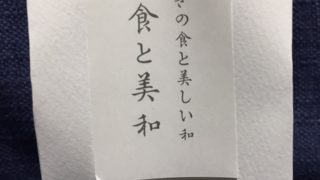 の食と美しい和
食と美和